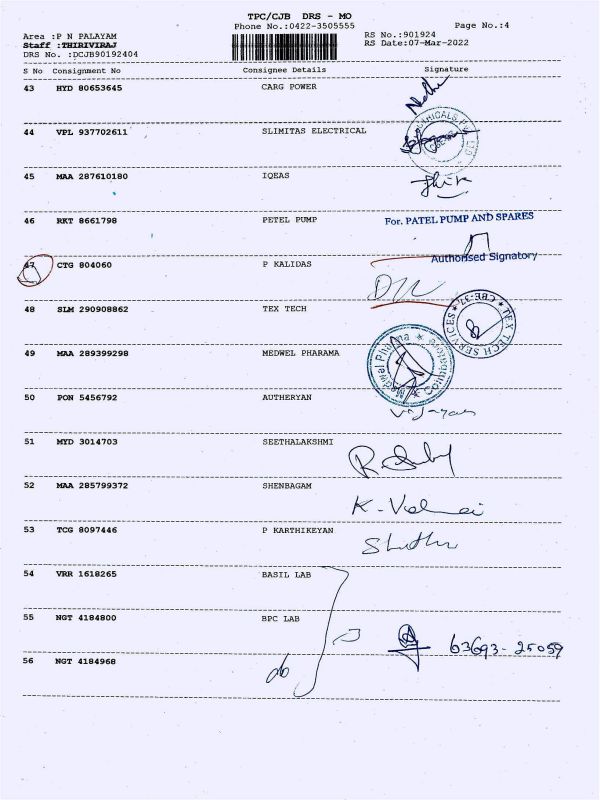 TPC/CJB DRS - MO
Phone No.:0422-3505555
Page No.:4
Area :P N PALAYAM
RS No.:901924
Staff :THIRIVIRAJ
RS Date:07-Mar-2022
DRS No. :DCJB90192404
S No Consignment No Consignee Details Signature
43 HYD 80653645 CARG POWER
44 VPL 937702611 SLIMITAS ELECTRICAL
45 MAA 287610180 IQEAS
46 RKT 8661798 PETEL PUMP
For. PATEL PUMP AND SPARES
Authorised Signatory
47 CTG 804060 P KALIDAS
48 SLM 290908862 TEX TECH
TEX TECH SERVICES * CBE-37 *
49 MAA 289399298 MEDWEL PHARAMA
Medwel Pharma * Coimbatore *
50 PON 5456792 AUTHERYAN
51 MYD 3014703 SEETHALAKSHMI
52 MAA 285799372 SHENBAGAM
53 TCG 8097446 P KARTHIKEYAN
54 VRR 1618265 BASIL LAB
55 NGT 4184800 BPC LAB
63693-25059
56 NGT 4184968